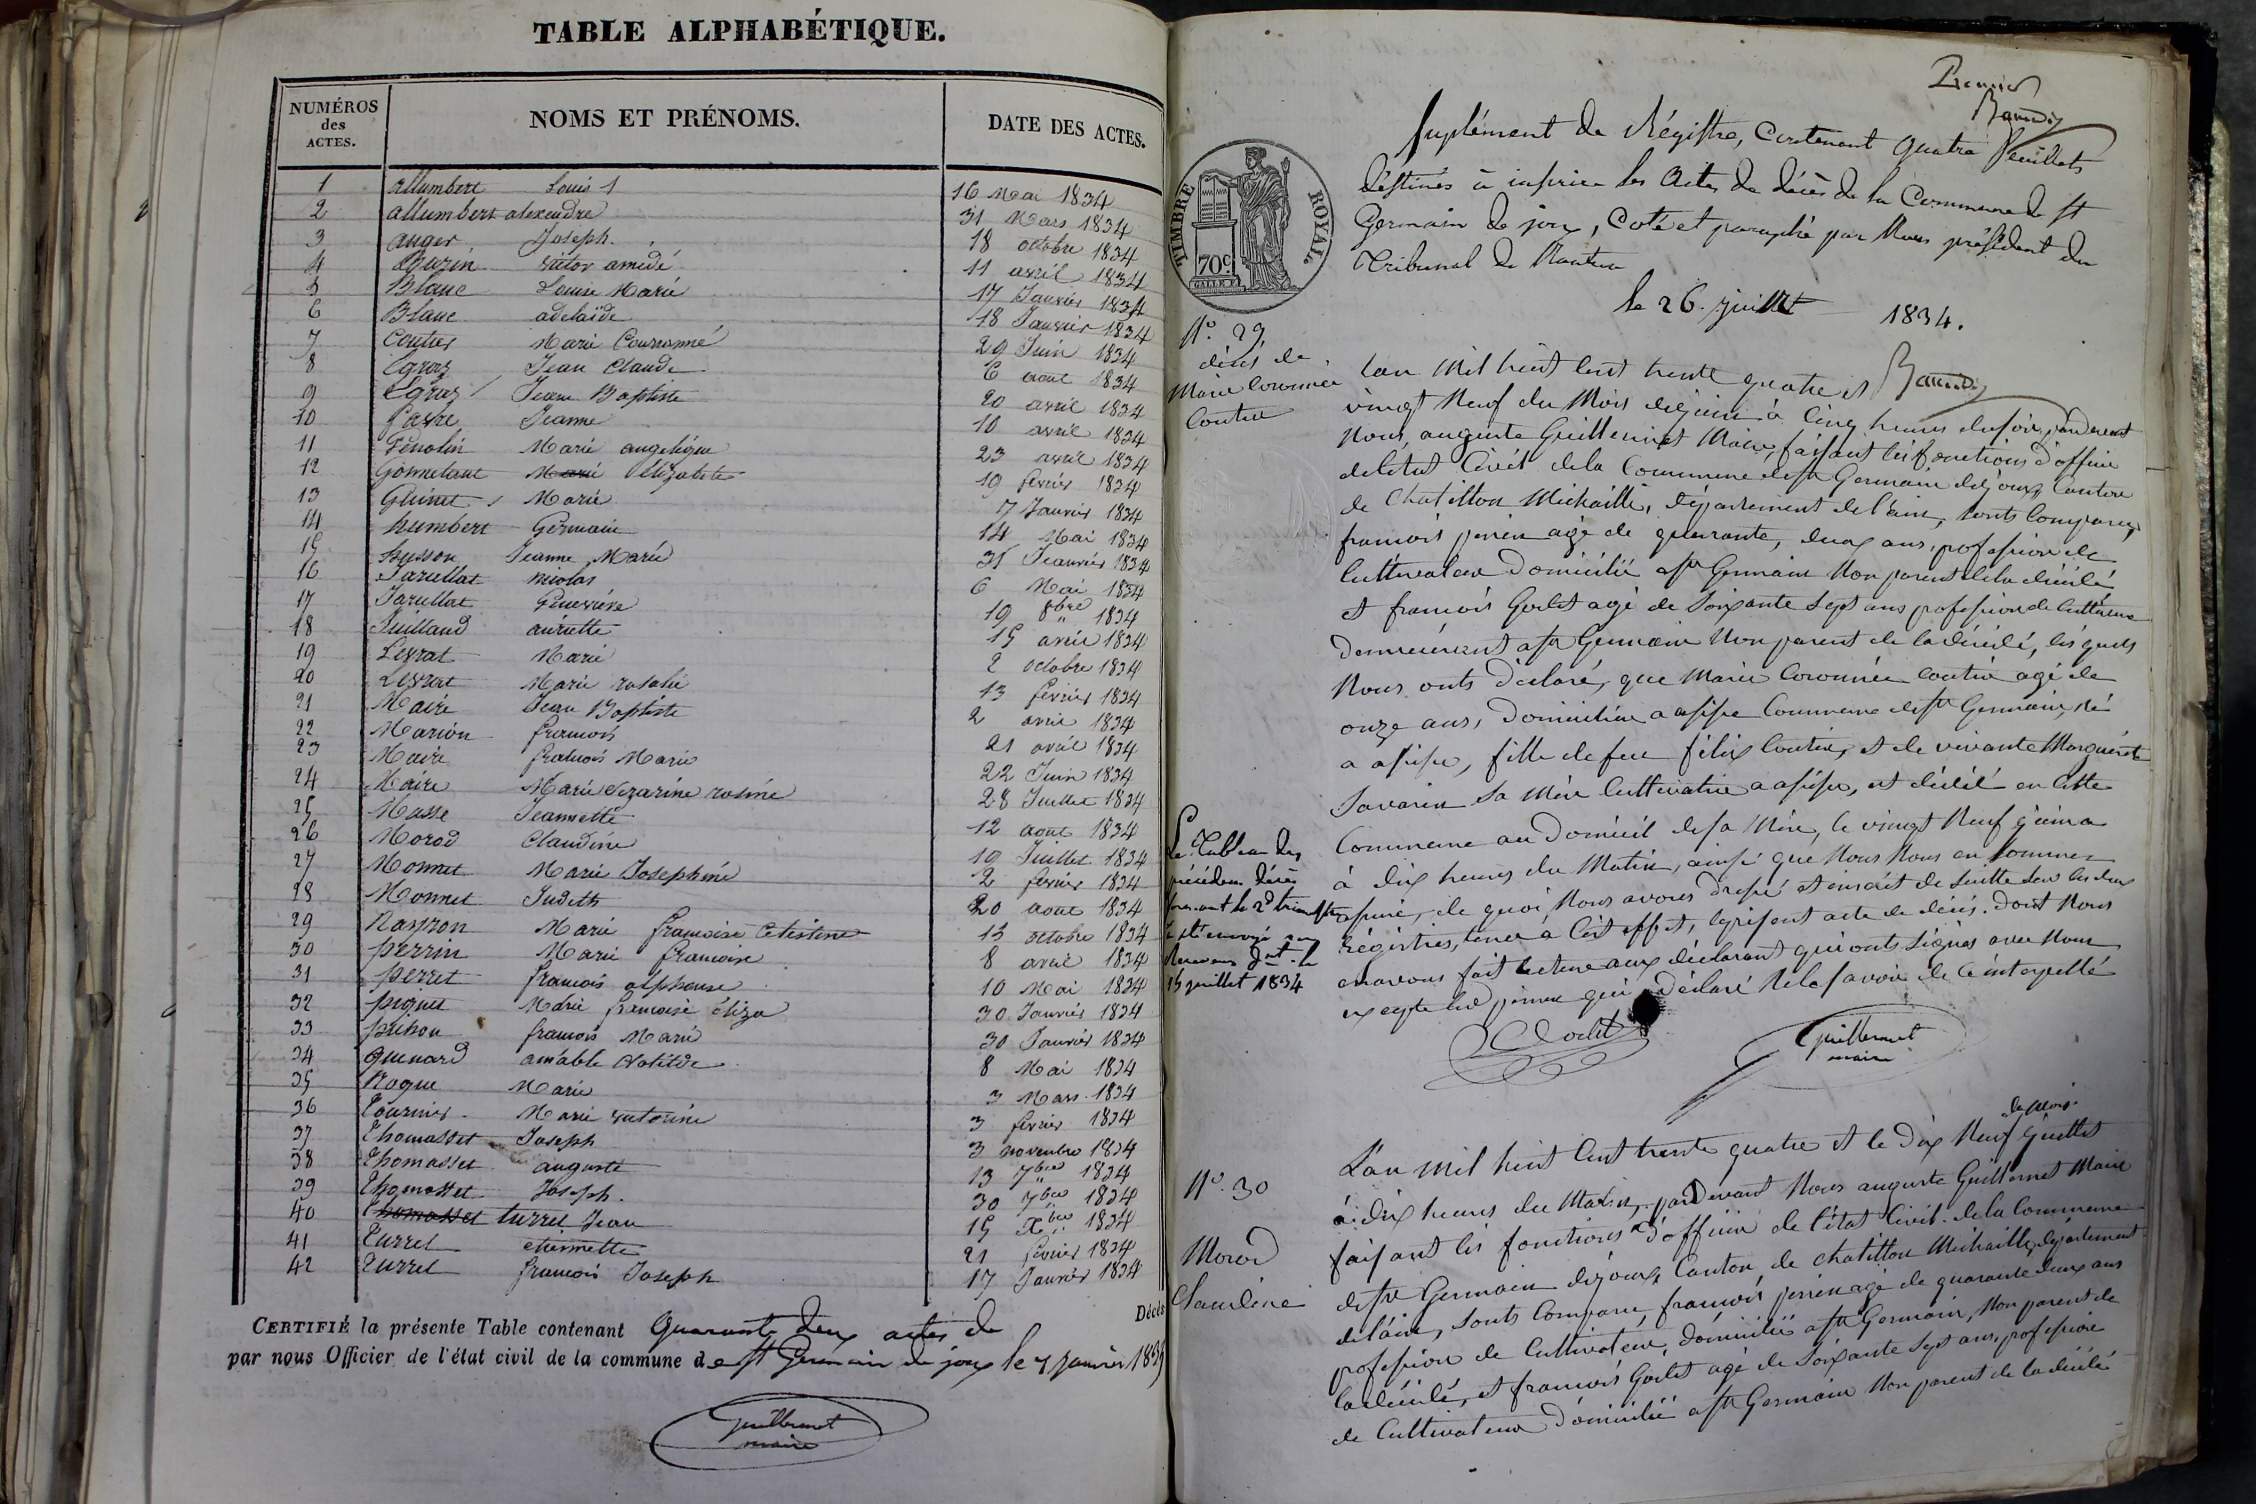 TABLE ALPHABÉTIQUE.
NUMÉROS des ACTES.
NOMS ET PRÉNOMS.
DATE DES ACTES.
1 allumbert Louis 1 16 Mai 1834
2 allumbert alexendre 31 Mars 1834
3 auger Joseph. 18 octobre 1834
4 victor amédé 11 avril 1834
5 Blanc Louise Marie 17 Janvier 1834
6 Blanc adelaïde 18 Janvier 1834
7 Coutier Marie Couronné 29 Juin 1834
8 Egraz Jean Claude 6 aout 1834
9 Egraz Jean Baptiste 20 avril 1834
10 favre Jeanne 10 avril 1834
11 Fenolin Marie angelique 23 avril 1834
12 Gonnetant Marie Elizabete 19 fevrier 1834
13 Guinet Marie 7 Janvier 1834
14 humbert Germain 14 Mai 1834
15 husson Jeanne Marie 31 Jeanvier 1834
16 Jarullat nicolas 6 Mai 1834
17 Jarullat Genevieve 19 8bre 1834
18 Juilland auriette 15 avril 1834
19 Levrat Marie 2 octobre 1834
20 Levrat Marie rosalie 13 fevrier 1834
21 Maire Jean Baptiste 2 avril 1834
22 Marion francois 21 avril 1834
23 Maire francois Marie 22 Juin 1834
24 Maire Marie Sezarine rosine 28 Juillet 1834
25 Masse Jeannette 12 aout 1834
26 Morod Claudine 19 Juillet 1834
27 Monnet Marie Josephine 2 fevrier 1834
28 Monnet Judith 20 aout 1834
29 Marie francoise Celestine 13 octobre 1834
30 perrin Marie francoise 8 avril 1834
31 perret francois alphonse 10 Mai 1834
32 piquet Marie francoise éliza 30 Janvier 1834
33 francois Marie 30 Janvier 1834
34 quinard amable Clotilde 8 Mai 1834
35 Rogue Marie 3 Mars 1834
36 Tournier Marie victorine 3 fevrier 1834
37 Thomasset Joseph 3 novembre 1834
38 Thomasset auguste 13 7bre 1834
39 Thomasset Joseph. 30 7bre 1834
40 Thomasset turrel Jean 15 Xbre 1834
41 Turrel etiennette 21 fevrier 1834
42 Turrel francois Joseph 17 Janvier 1834
CERTIFIÉ la présente Table contenant Quarante deux actes de Décès
par nous Officier de l'état civil de la commune de St Germain de joux le 7 janvier 1835
Guillermet
maire
Premier
TIMBRE ROYAL.
70c
Suplément de Régistre, Contenant quatre feuillets
déstinés à inscrire les Actes de décès de la Commune de St
Germain de joux, Coté et paraphé par Nous président du
Tribunal de Nantua
le 26. juillet 1834.
N°. 29,
décès de
Marie Couronnée
Coutier
lan Mil huit cent trente quatre et
vingt Neuf du Mois dejuin à Cinq heures dusoir, pardevant
Nous, auguste Guillermet Maire, faisant les fonctions d'officier
deletat Civil dela Commune de St Germain dejoux, Canton
de Chatillon Michaille, département del'ain, sonts Comparus,
francois perrin agé de quarante, deux ans, profession de
Cultivateur Domicilié a St Germain Non parent dela décédé
et francois Godet agé de Soixante Sept ans profession de Cultivateur
demeurant a St Germain Non parent de ladécédé, les quels
Nous onts déclaré, que Marie Couronnée Coutier agé de
onze ans, Domiciliée a Commune de St Germain, né
a , fille defeu félix Coutier, et de vivante Marguerite
Savarin Sa Mère Cultivatrice a , est décédé en Cette
Commune au Domicil desa Mère, le vingt Neuf juin a
à dix heures du Matin, ainsi que Nous Nous en sommes
assuré, de quoi Nous avons dressé et inscrit de Suitte Sur les deux
Régistres, tenus à Cet effet, le présent acte de décès. dont Nous
enavons fait lecture aux déclarant qui onts Signés avec Nous
excepté led perrin qui a déclaré Nele Savoir de Ce interpellé
Le Tableau des
précédens décès
formant le 2d trimestre
a été envoyé au
Receveur
15 juillet 1834
Godet
Guillermet
maire
N°. 30
Morod
Claudine
L'an Mil huit Cent trente quatre et le Dix Neuf du mois juillet
à dix heures du Matin, pardevant Nous auguste Guillermet Maire
faisant les fonctions d'officier de l'état Civil dela Commune
de St Germain dejoux, Canton de Chatillon Michaille, département
delain, Sonts Comparu, francois perrin agé de quarante deux ans
profession de Cultivateur, domicilié a St Germain, Non parent de
ladécédé, et francois Godet agé de Soixante Sept ans, profession
de Cultivateur Domicilié a St Germain Non parent de ladécédé